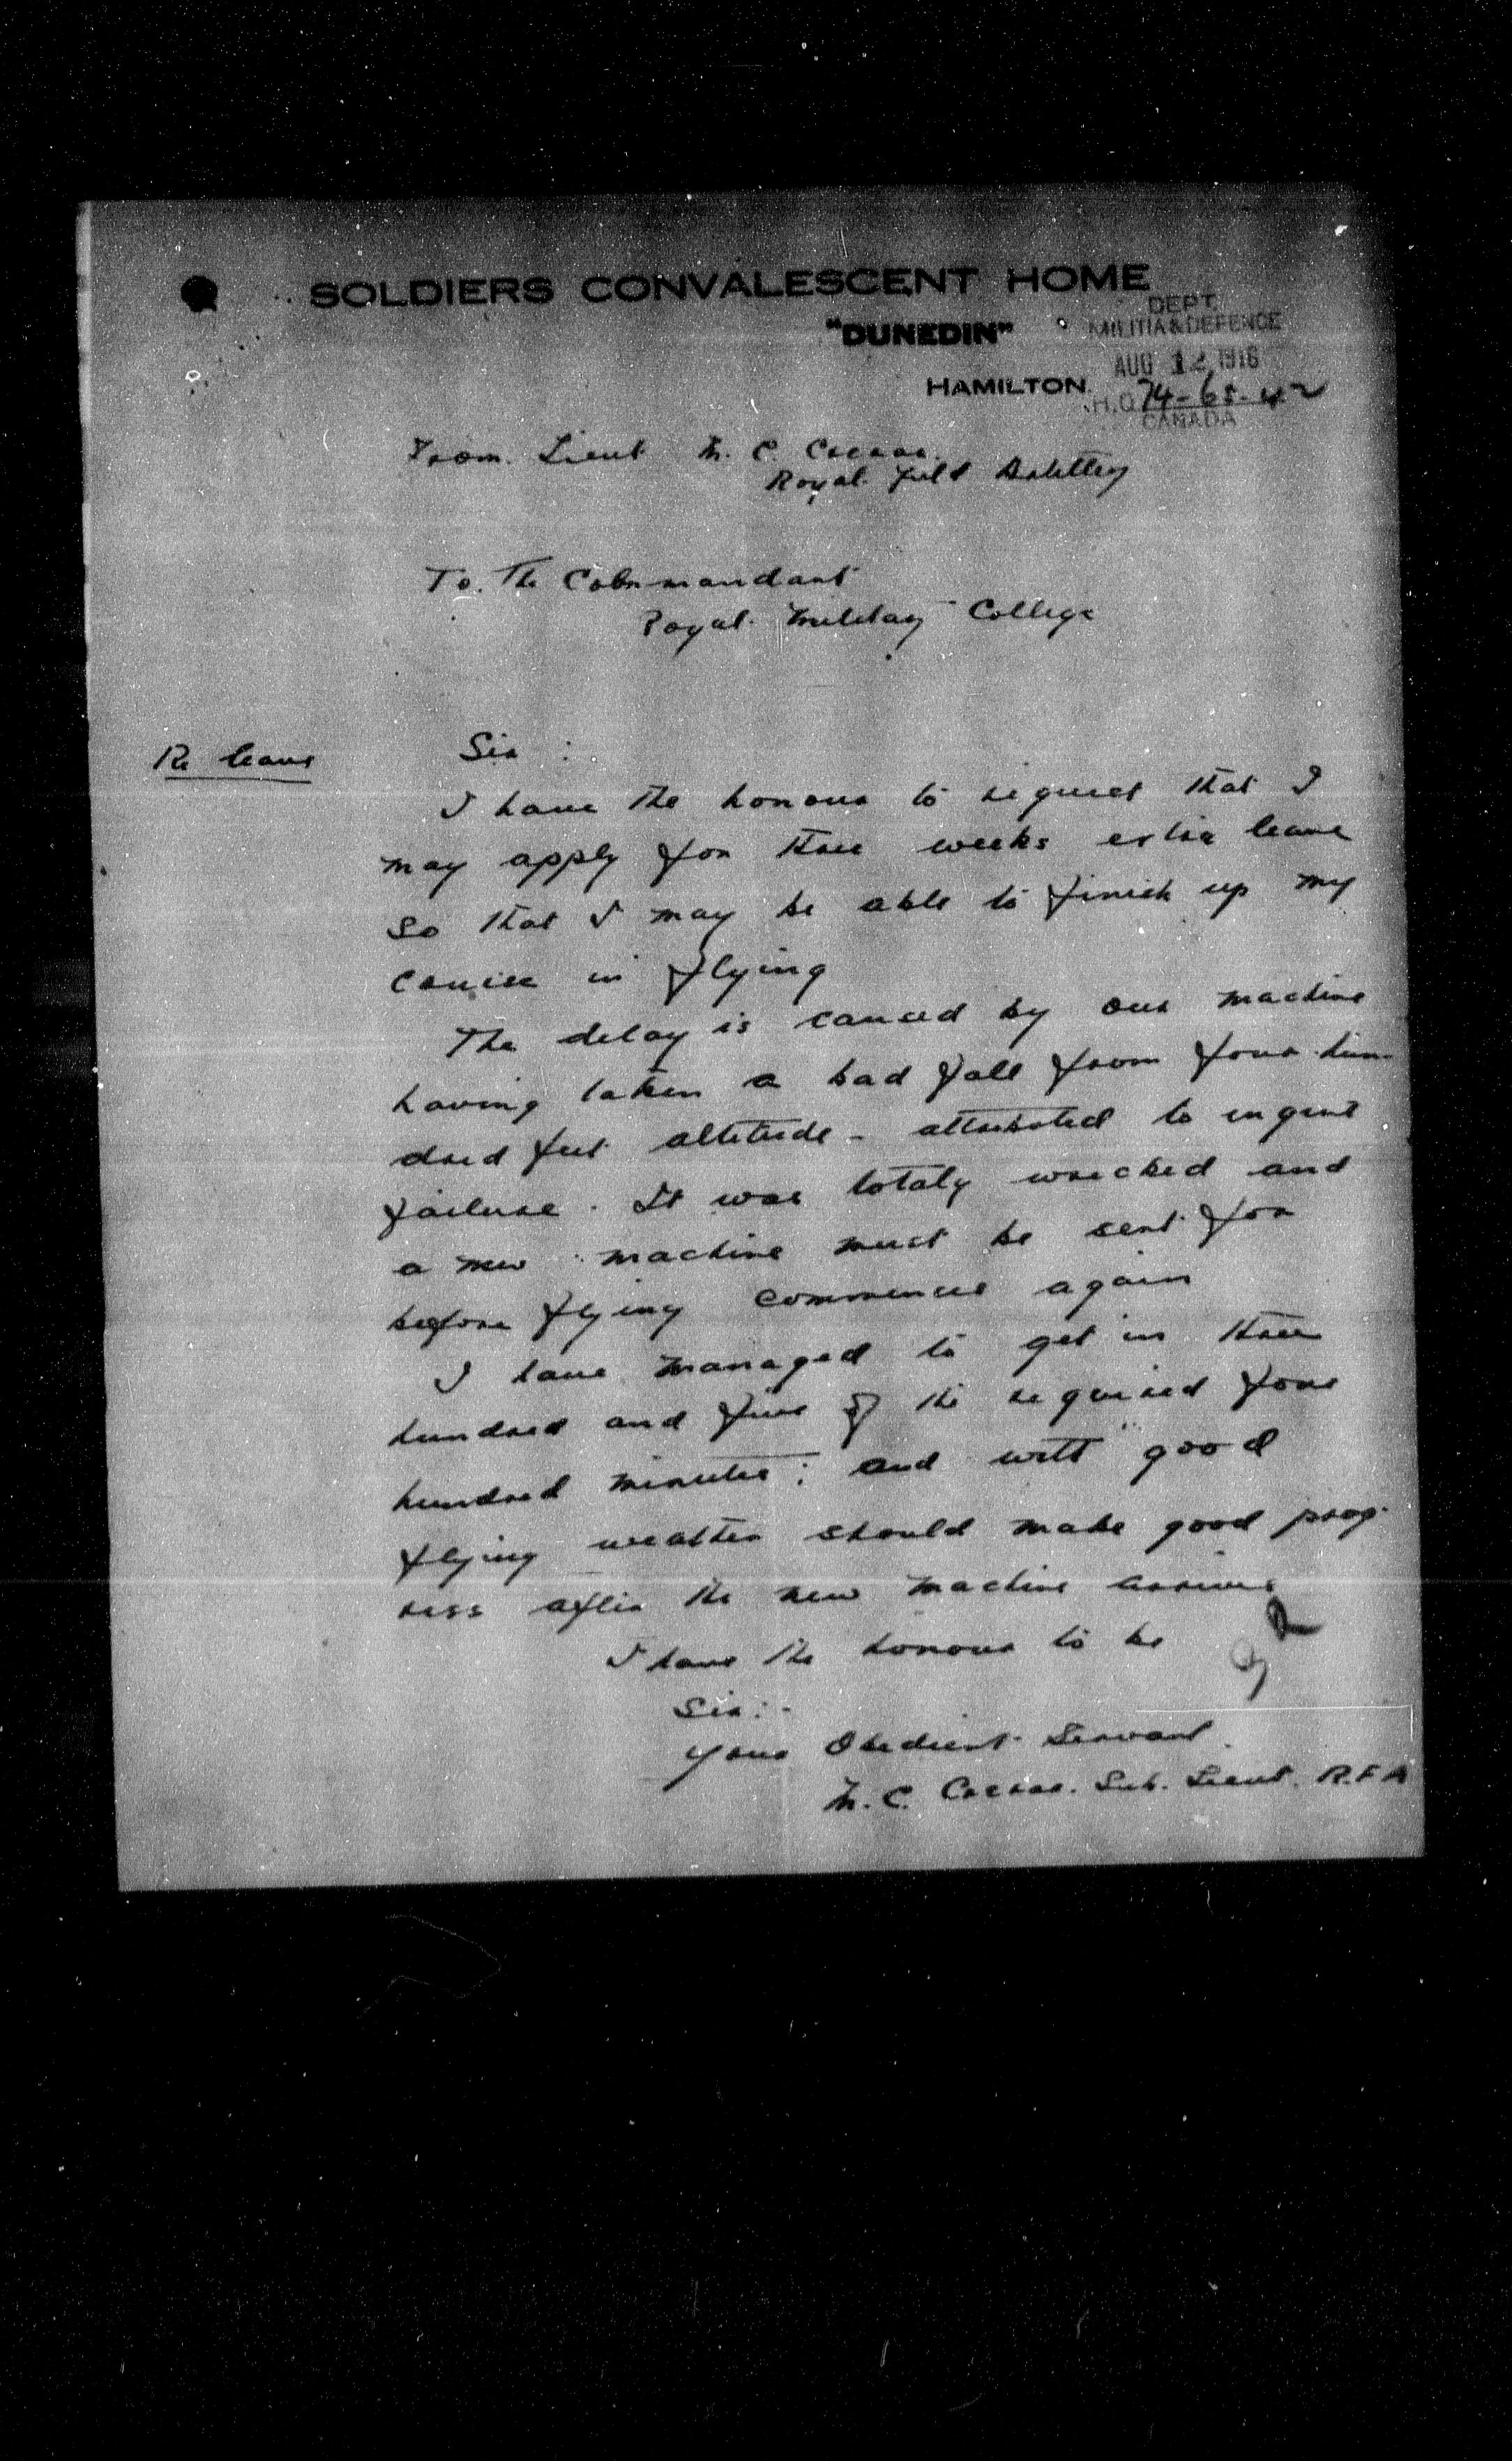 SOLDIERS CONVALESCENT HOME
"DUNEDIN"
HAMILTON.
DEPT.
MILITIA & DEFENCE
AUG 12 1916
H.Q 74-65-42
CANADA
From. Lieut C.
Royal Field
To. The Commandant
Royal Military College
Re leave
Sir :
I have the honour to request that I
may apply for three weeks extra leave
so that I may be able to finish up my
course in flying
The delay is caused by our machine
having taken a bad fall from four hun-
dred feet altitude - attributed to engine
failure. It was totaly wrecked and
a new machine must be sent for
before flying commences again
I have managed to get in three
hundred and five of the required four
hundred minutes; and with good
flying weather should make good prog-
ress after the new machine arrives
I have the honour to be
Sir:-
Your Obedient Servant.
C. Sub. Lieut. R.F.A